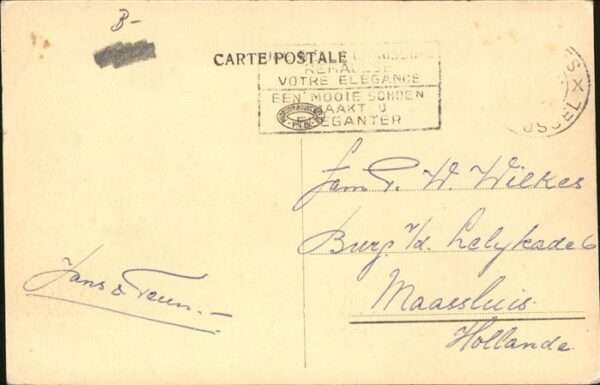 B-
CARTE POSTALE
REHAUSSE
VOTRE ELEGANCE
EEN MOOIE SCHOEN
MAAKT U
ELEGANTER
Fam P. W. Wilkes
Burg. v/d. Lelykade 6
Maassluis.
Hollande
Jans & Teun.-